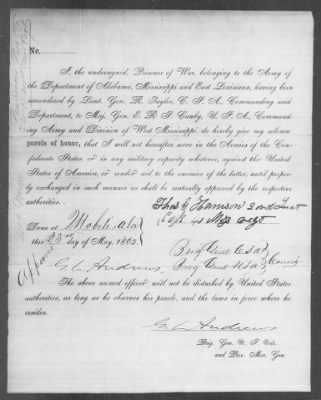 No.
I, the undersigned, Prisoner of War, belonging to the Army of
the Department of Alabama, Mississippi and East Louisiana, having been
surrendered by Lieut. Gen. R. Taylor, C. S. A., Commanding
said Department, to Maj. Gen. E. R. S. Canby, U. S. A., Command-
ing Army and Division of West Mississippi, do hereby give my solemn
parole of honor, that I will not hereafter serve in the Armies of the Con-
federate States, or in any military capacity whatever, against the United
States of America, or render aid to the enemies of the latter, until prop-
erly exchanged in such manner as shall be mutually approved by the respective
authorities.
Done at Mobile Ala
this 23rd day of May, 1865.
Brig Genl C S A
G. L. Andrews, Brig Genl U S A
Approved
The above named officer will not be disturbed by United States
authorities, as long as he observes his parole, and the laws in force where he
resides.
G. L. Andrews
Brig. Gen. U. S. Vols.
and Pro. Mar. Gen.